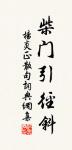 柴门引径斜
杨炎正散句词典网集